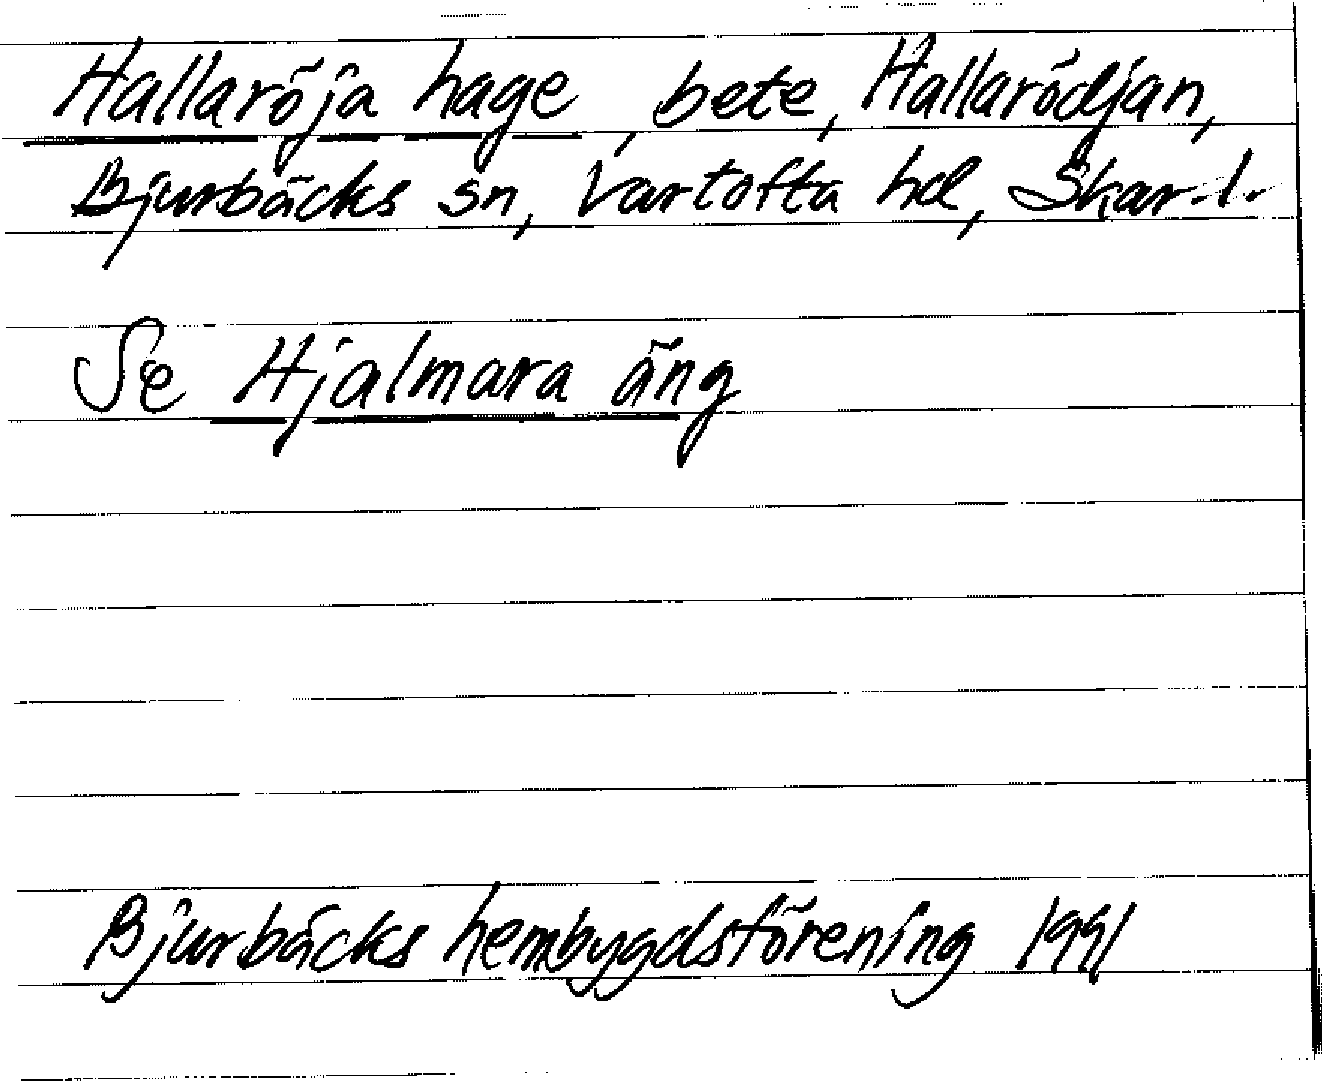 Hallaröja hage, bete, Hallarödjan,
Bjurbäcks sn, Vartofta hd, Skar. l.
Se Hjalmara äng
Bjurbäcks hembygdsförening 1991